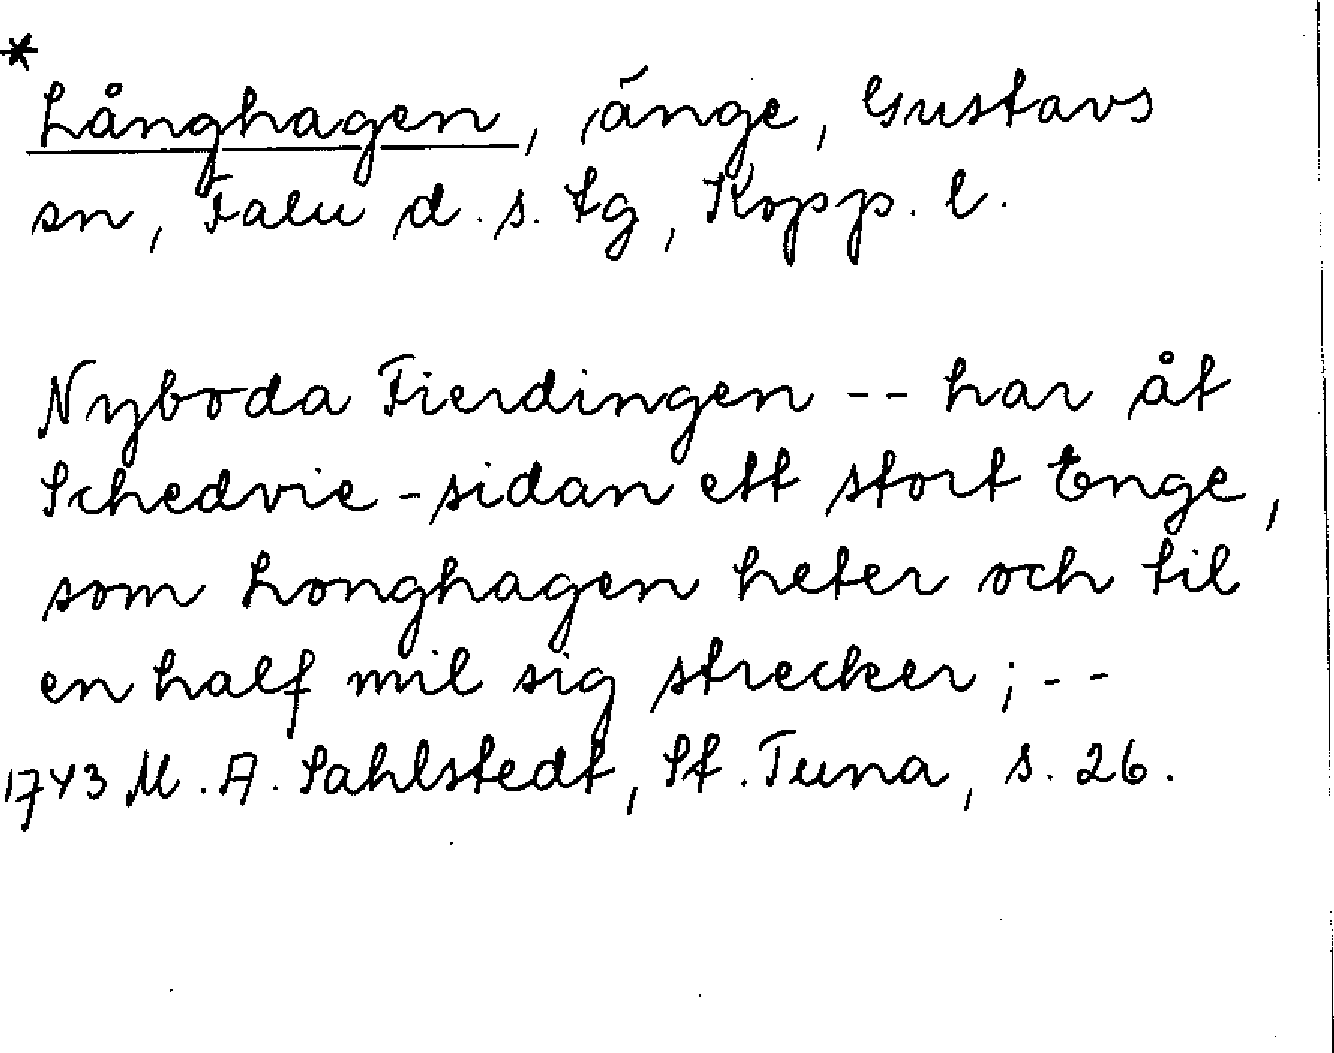 *
Långhagen, änge, Gustavs
sn, Falu d. s. tg, Kopp. l.
Nyboda Fierdingen -- har åt
Schedvie-sidan ett stort Enge,
som Longhagen heter och til
en half mil sig strecker; --
1743 M. A. Sahlstedt, St. Tuna, s. 26.